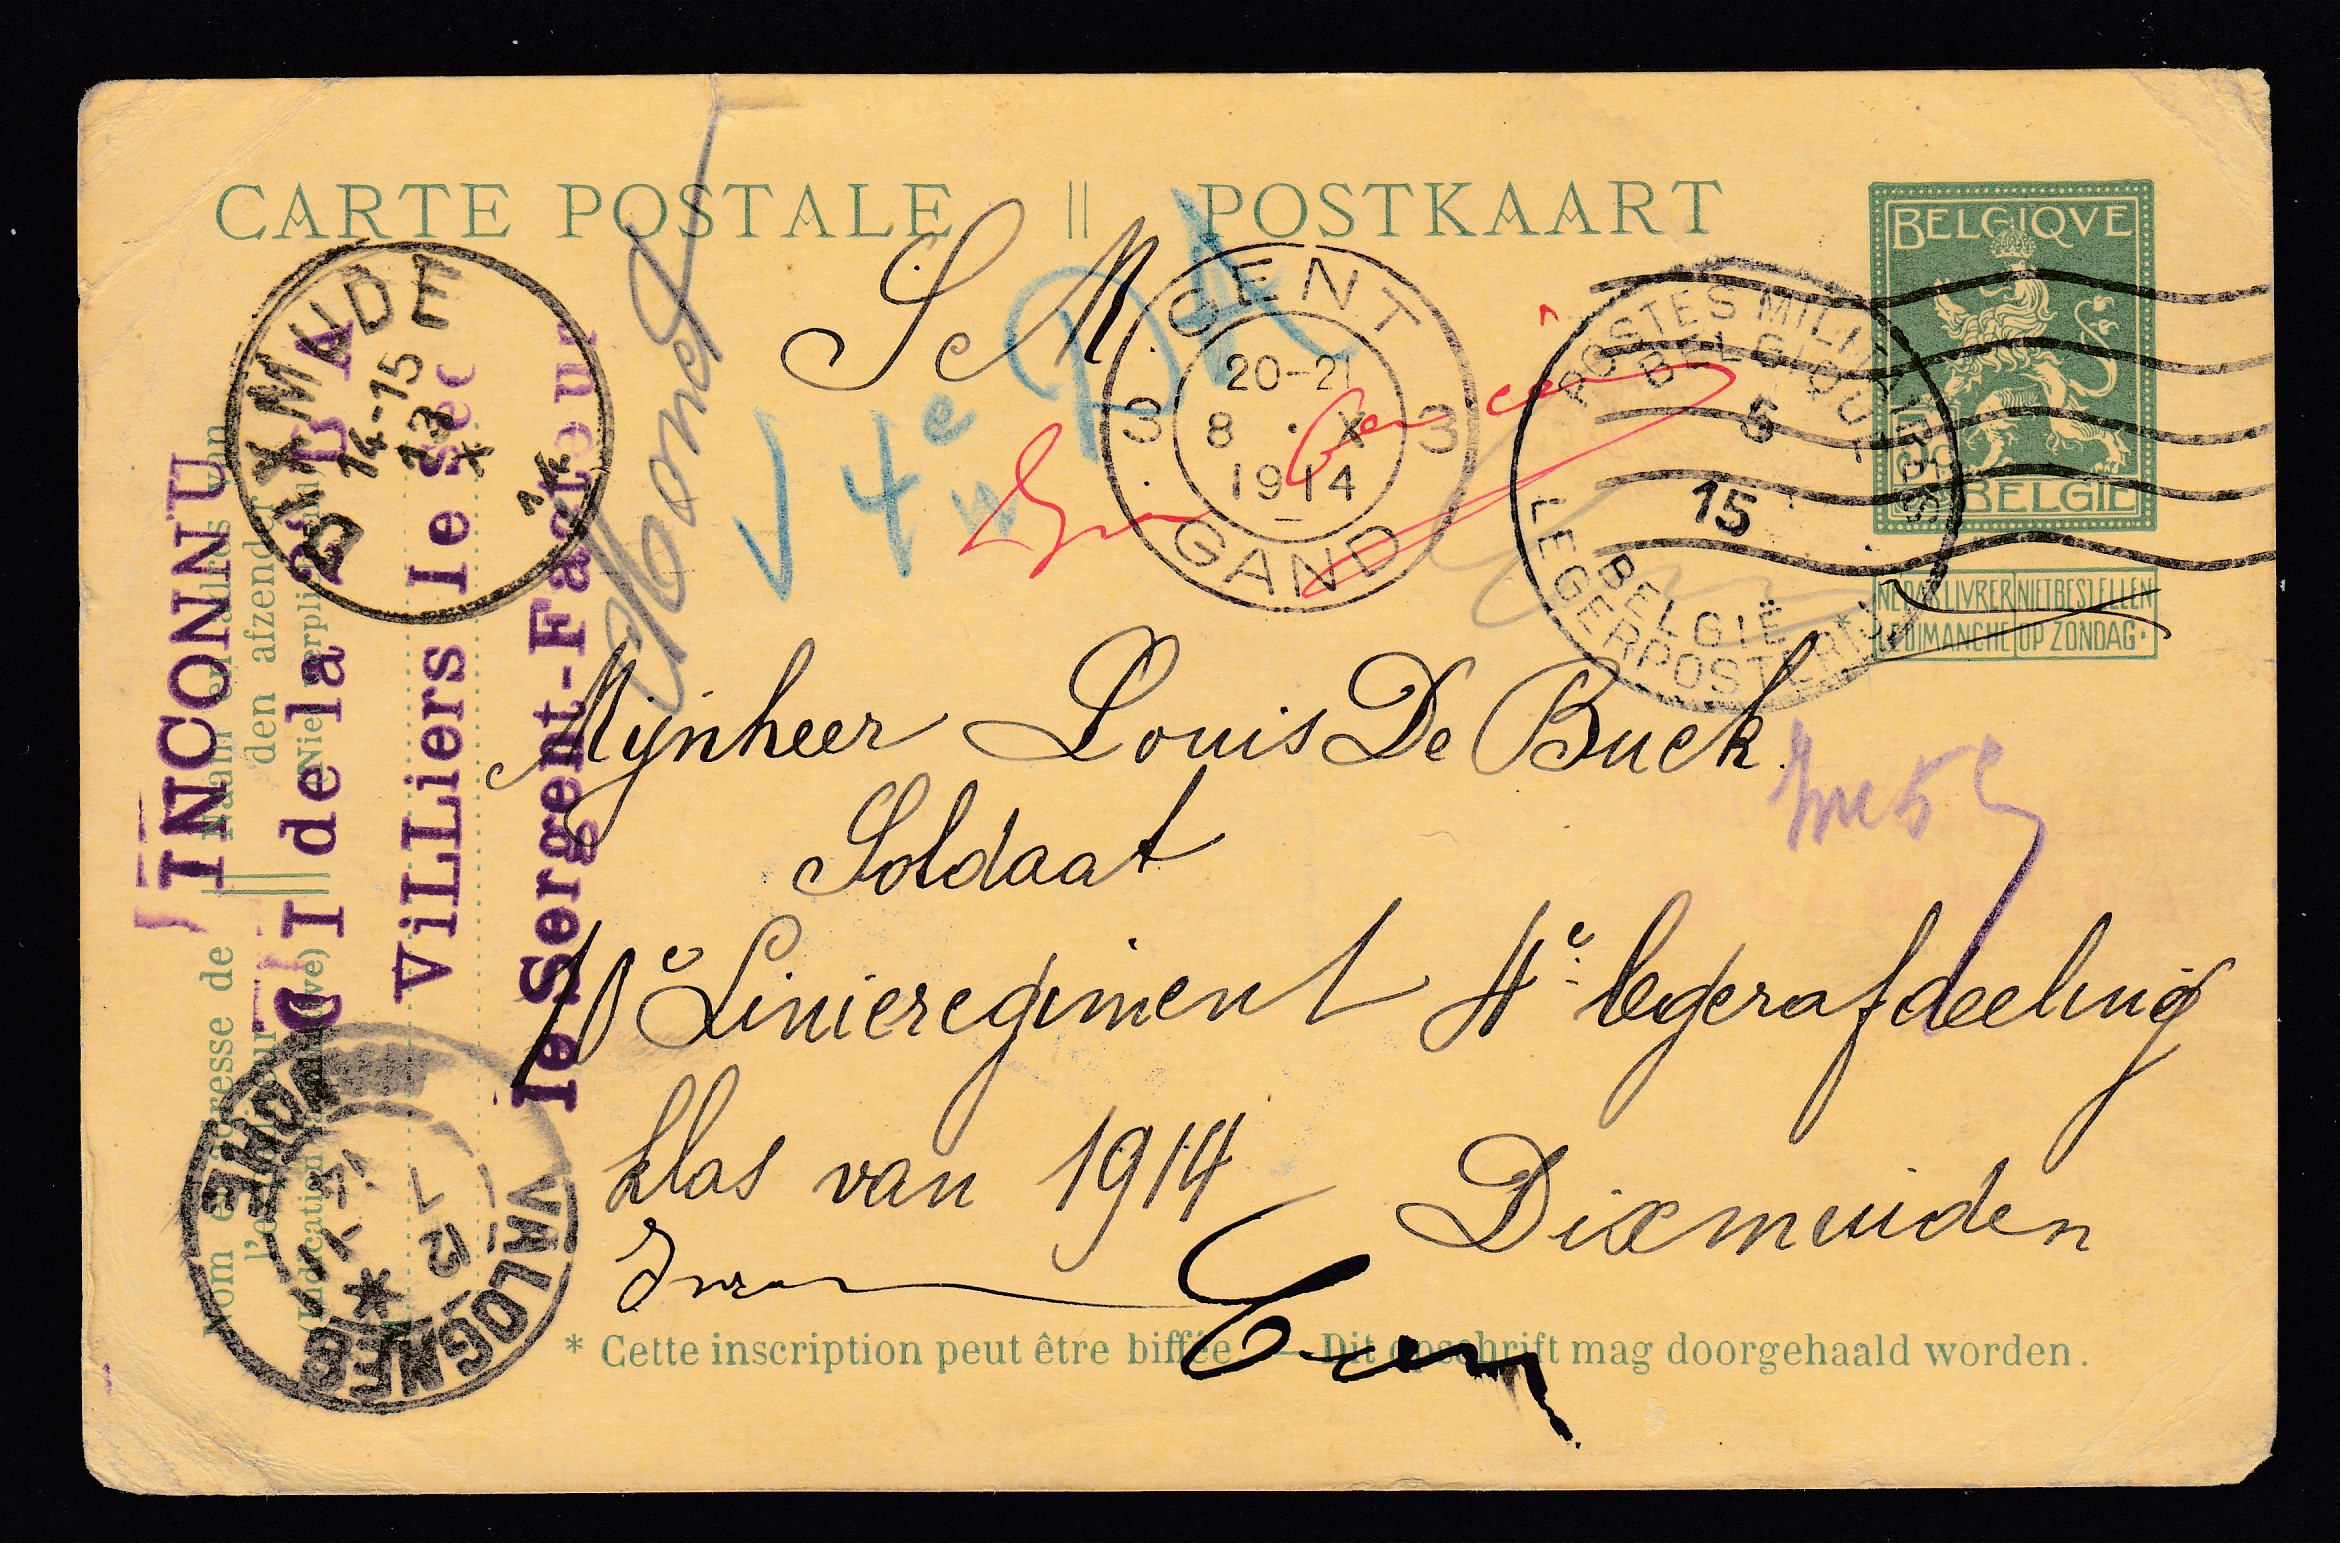 CARTE POSTALE || POSTKAART
BELGIQVE
BELGIË
NE PAS LIVRER LE DIMANCHE
NIET BESTELLEN OP ZONDAG.
S M
GENT
20-21
8 X
1914
3 3
GAND
POSTES MILITAIRES
BELGIQUE
5
15
BELGIË
LEGERPOSTERIJ
DIXMUDE
14-15
14
4e DA
INCONNU
de la
ViLLiers le Sec
le Sergent-Facteur
Mijnheer Louis De Buck.
Soldaat
10e Linieregiment 4e legerafdeeling
klas van 1914
Dixmuiden
VALOGNES
MANCHE
Nom et adresse de l'expéditeur
(Indication facultative)
Naam en adres van den afzender
(Niet verplichtend)
* Cette inscription peut être biffée. — Dit opschrift mag doorgehaald worden.